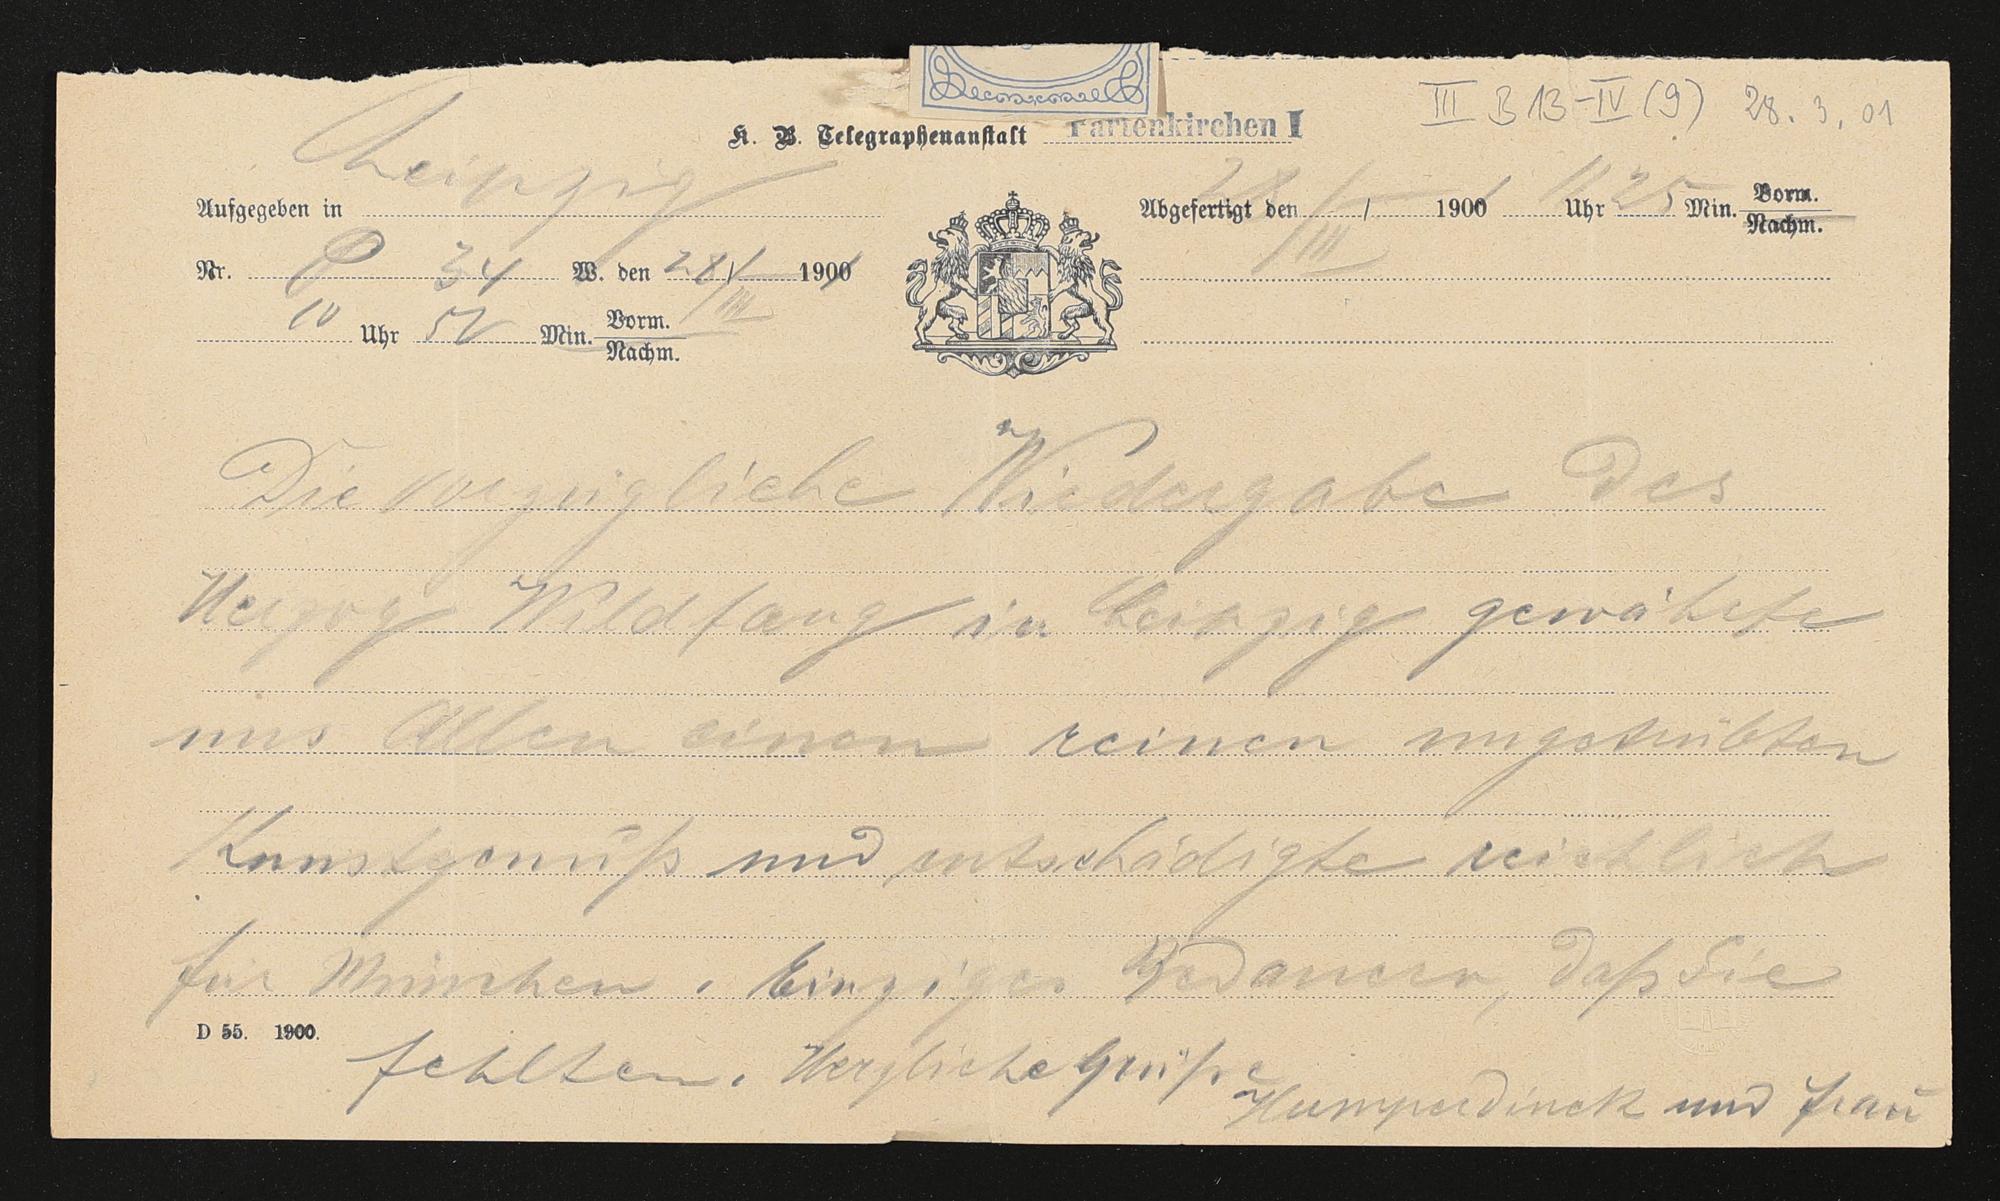 III B 13-IV (9) 28. 3. 01
K. B. Telegraphenanstalt Partenkirchen I
Aufgegeben in Leipzig
Nr. P 34 W. den 28/III 1900
10 Uhr 50 Min. Vorm. Nachm.
Abgefertigt den 28/III 1900 11 Uhr 25 Min. Vorm. Nachm.
Die vorzügliche Wiedergabe des
Herzog Wildfang in Leipzig gewährte
uns Allen einen reinen ungetrübten
Kunstgenuß und entschädigte reichlich
für München. Einziges Bedauern, daß Sie
D 55. 1900.
fehlten. Herzliche Grüße
Humperdinck und Frau